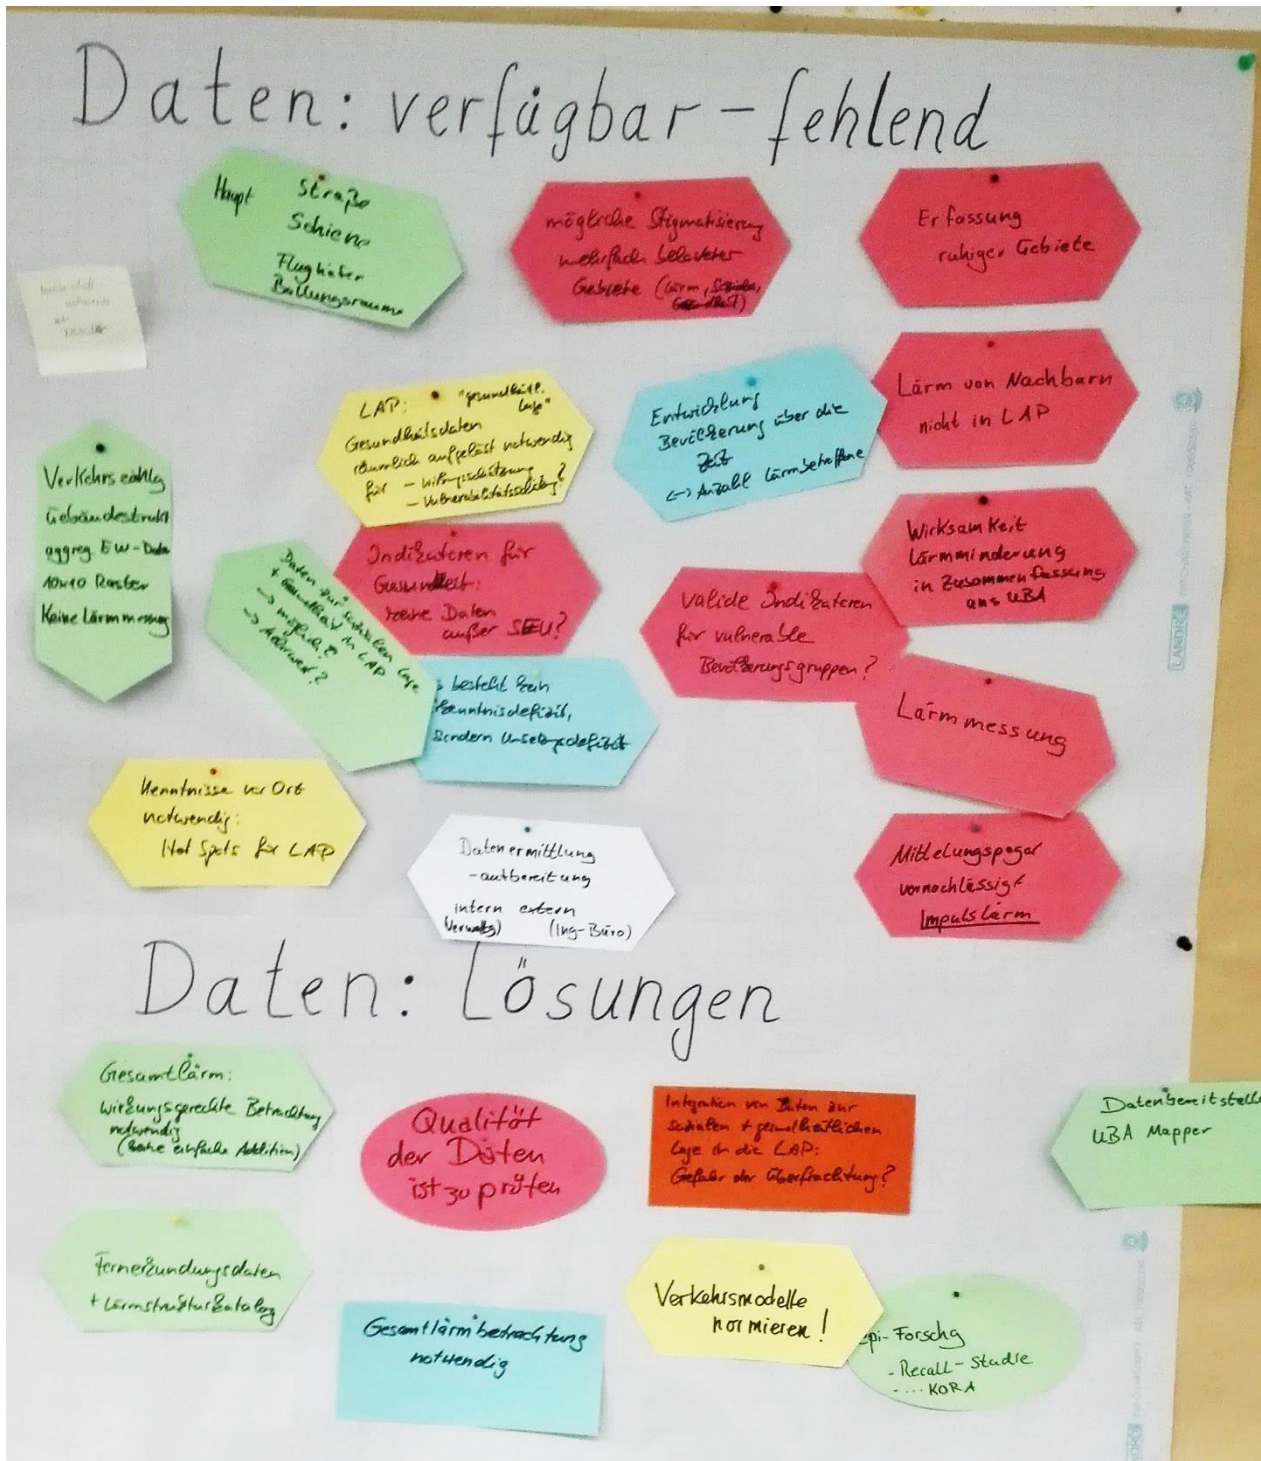 Daten: verfügbar - fehlend
Haupt Straße
Schiene
Flughäfen
Ballungsräume
mögliche Stigmatisierung
mehrfach belasteter
Gebiete (Lärm,
Erfassung
ruhiger Gebiete
LAP: "gesundheitl.
Lage"
Gesundheitsdaten
räumlich aufgelöst notwendig
für - Wirkungsschätzung
- Vulnerabilitätsschätzg?
Entwicklung
Bevölkerung über die
Zeit
<-> Anzahl Lärmbetroffene
Lärm von Nachbarn
nicht in LAP
Verkehrszählg
Gebäudestrukt
aggreg. EW-Date
10x10 Raster
Keine Lärmmessung
Daten zur sozialen Lage
+ Gesundheit in LAP
-> möglich?
-> Mehrwert?
Indikatoren für
Gesundheit:
keine Daten
außer SEU?
valide Indikatoren
für vulnerable
Bevölkerungsgruppen?
Wirksamkeit
Lärmminderung
in Zusammenfassung
aus UBA
s besteht kein
kenntnisdefizit,
sondern Umsetzgsdefizit
Lärmmessung
Kenntnisse vor Ort
notwendig:
Hot Spots für LAP
Datenermittlung
-aufbereitung
intern extern
(Verwaltg) (Ing-Büro)
Mittelungspegel
vernachlässigt
Impulslärm
Daten: Lösungen
Gesamtlärm:
wirkungsgerechte Betrachtung
notwendig
(keine einfache Addition)
Qualität
der Daten
ist zu prüfen
Integration von Daten zur
sozialen + gesundheitlichen
Lage in die LAP:
Gefahr der Überfrachtung?
Datenbereitstell
UBA Mapper
Fernerkundungsdaten
+ Lärmstrukturkatalog
Gesamtlärmbetrachtung
notwendig
Verkehrsmodelle
normieren!
epi-Forschg
- Recall-Studie
- ... KORA
LANDRÉ